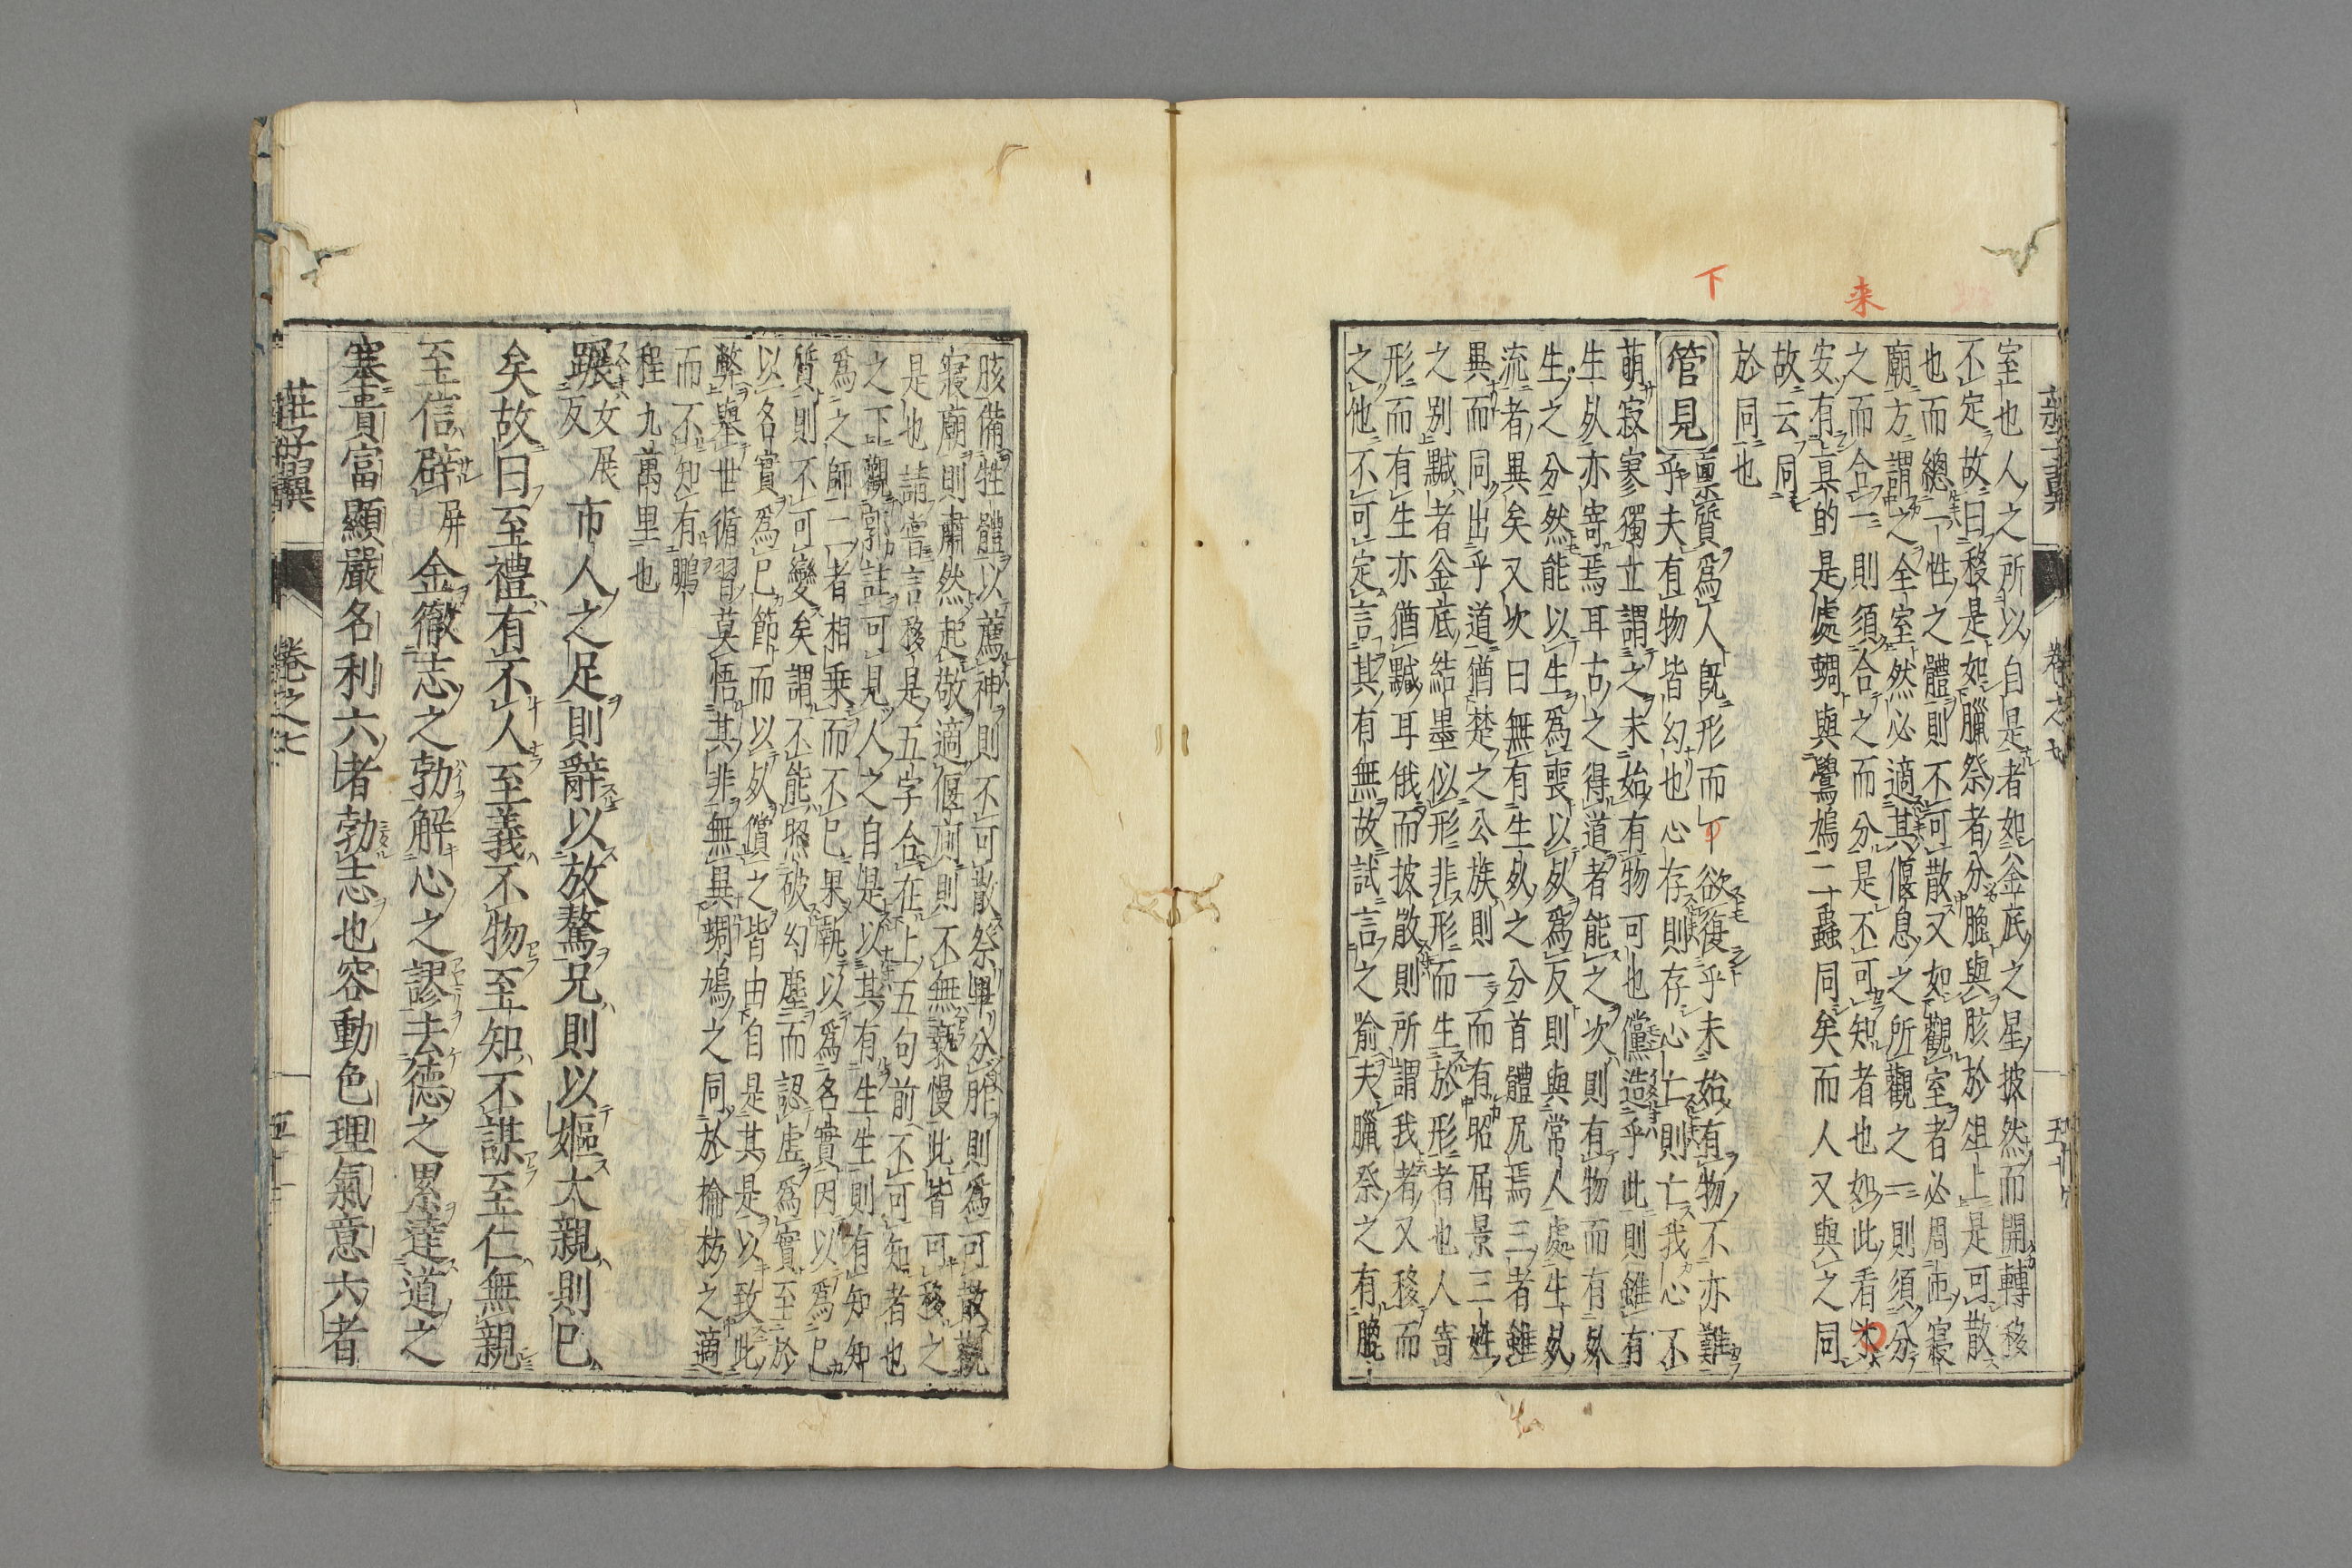 来
下
室也人之所以自是者如釡底之星披然而開轉移
不定故曰移是如臘祭者分膍與胲於俎上是可散
也而總一性之體則不可散又如觀室者必周而寢
廟方謂之全室然必適其偃息之所觀之一則須分
之而合二則須合之而分是不可知者也如此看
安有眞的是處蜩與鷽鳩二蟲同矣而人又與之同
故云同
於同也
管見 禀質爲人既形而下欲復乎未始有物不亦難
乎夫有物皆幻也心存則存心亡則亡我心不
萌寂寥獨立謂之未始有物可也儻造乎此則雖有
生死亦寄焉耳古之得道者能之次則有物而有死
生之分然能以生爲喪以死爲反則與常人處生死
流者異矣又次曰無有生死之分首體尻焉三者雖
異而同出乎道猶楚之公族則一而有昭屈景三姓
之别黬者釡底結墨似形非形而生於形者也人寄
形而有生亦猶黬耳俄而披散則所謂我者又移而
之他不可定言其有無故試言之喩夫臘祭之有膍
胲備牲體以薦神則不可散祭畢分胙則爲可散觀
寢廟則肅然起敬適偃廁則不無褻慢此皆可移之
是也請嘗言移是五字合在上五句前不可知者也
之下觀郭註可見人之自是以其有生生則有知知
爲之師二者相乗而不已果執以爲名實因以爲已
質則不可變矣謂不能照破幻塵而認虚爲實至於
以名實爲已節而以死償之皆由自是其是以致此
弊舉世循習莫悟其非無異蜩鳩之同於槍枋之適
而不知有鵬
程九萬里也
蹍女展反市人之足則辭以放驁兄則以嫗大親則已
矣故曰至禮有不人至義不物至知不謀至仁無親
至信辟屏金徹志之勃解心之謬去德之累達道之
塞貴富顯嚴名利六者勃志也容動色理氣意六者
莊子翼 卷之七